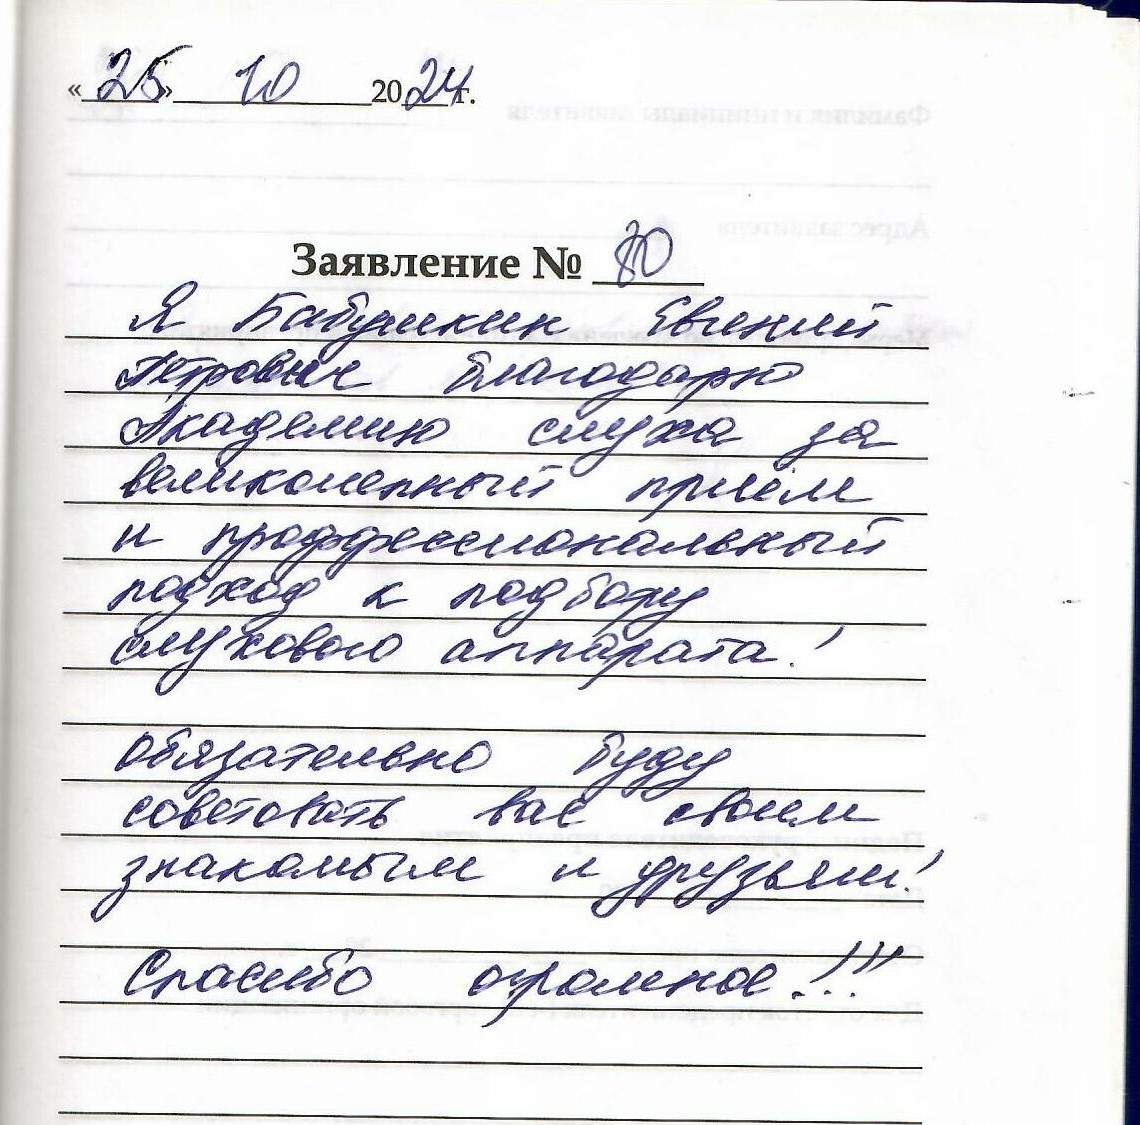 «25» 10 2024 г.
Заявление № 80
Я Бабушкин Евгений
Петрович благодарю
Академию слуха за
великолепный приём
и проффессиональный
подход к подбору
слухового аппарата!
обязательно буду
советовать вас своим
знакомым и друзьям!
Спасибо огромное!!!